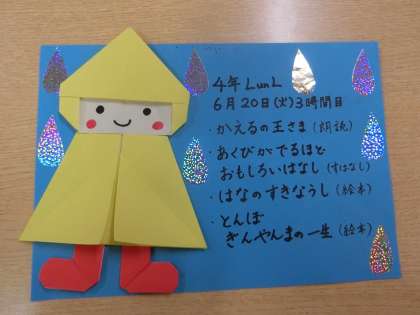 4年 LunL
6月20日(火)3時間目
・かえるの王さま(朗読)
・あくびがでるほど
おもしろいはなし(すばなし)
・はなのすきなうし(絵本)
・とんぼ
ぎんやんまの一生(絵本)